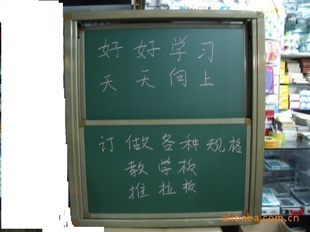 好好学习
天天向上
订做各种规格
教学板
推拉板
alibaba.com.cn